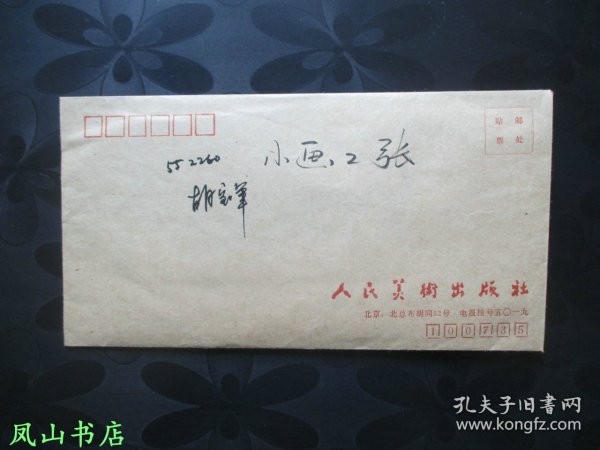 贴 邮
票 处
小画，2张
55 2260
胡
人民美術出版社
北京：北总布胡同32号 电报挂号五〇一九
100735
孔夫子旧书网
www.kongfz.com
凤山书店